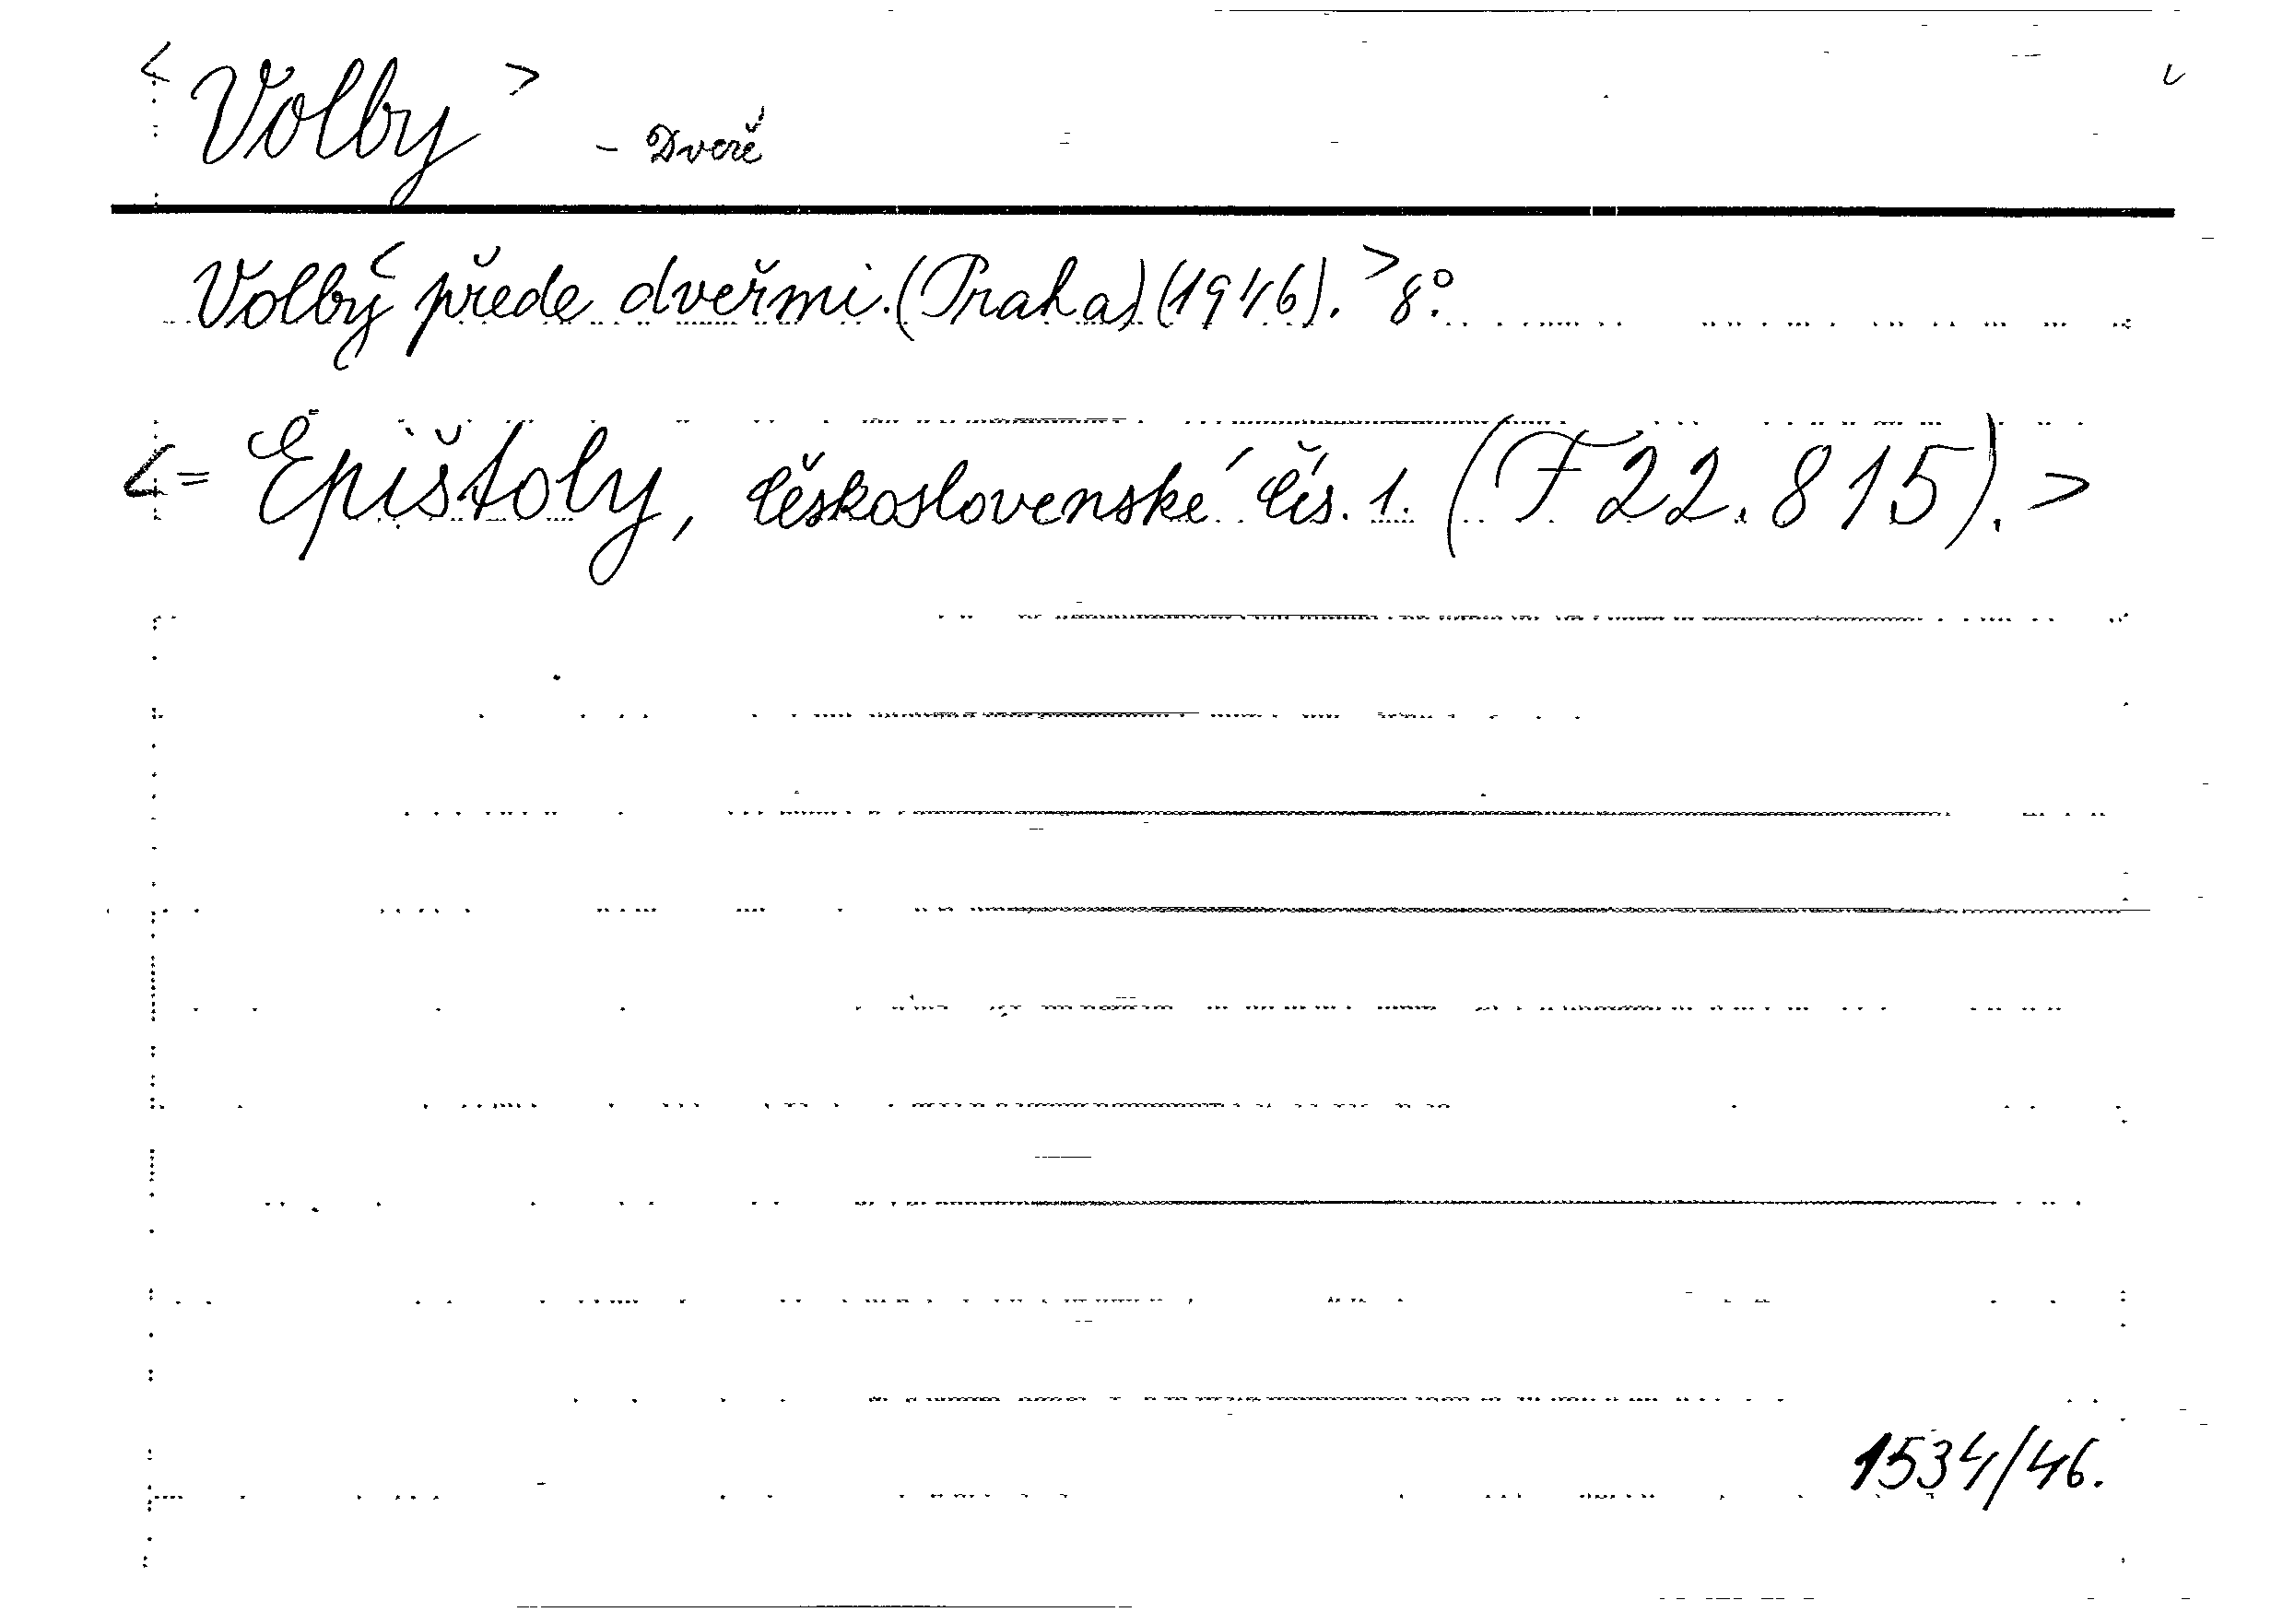 < Volby > - Dveře
Volby < přede dveřmi. (Praha) (1946). > 8°.
< = Epištoly, československé čís. 1. (F 22.815). >
1534/46.